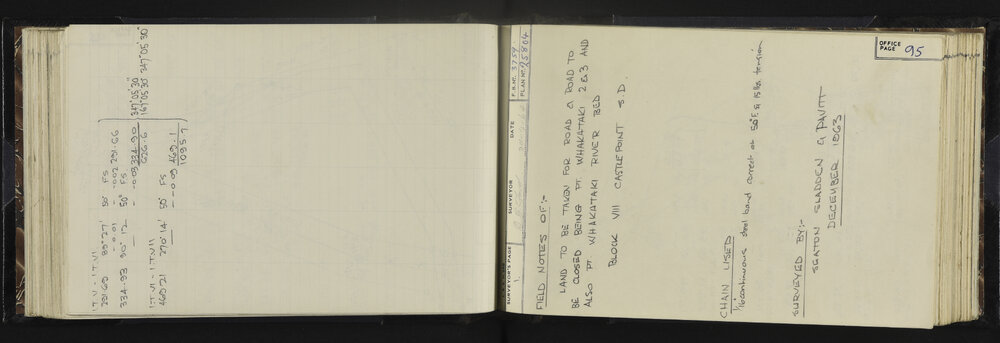 I.T. VI - I.T. VII
291·69 89° 27' 50° FS
— 0.01 — ·002 291·66
334-93 90° 12 50° FS
— - 0.03 334-90 347° 05' 30"
626·6 167° 05' 30" 347° 05' 30"
I.T. VI - I.T. VII
469·21 270° 14' 50° FS
— — 0.09 469·1
1095·7
OFFICE PAGE 95
SURVEYOR'S PAGE 1.
SURVEYOR
DATE
F.B. No. 3759
PLAN No. 25804
FIELD NOTES OF:-
LAND TO BE TAKEN FOR ROAD & ROAD TO
BE CLOSED BEING PT. WHAKATAKI 2 & 3 AND
ALSO PT WHAKATAKI RIVER BED
BLOCK VIII CASTLEPOINT S.D.
CHAIN USED
steel band correct at 50°F & 15 lbs. tension
SURVEYED BY:-
SEATON SLADDEN & PAVITT
DECEMBER 1963